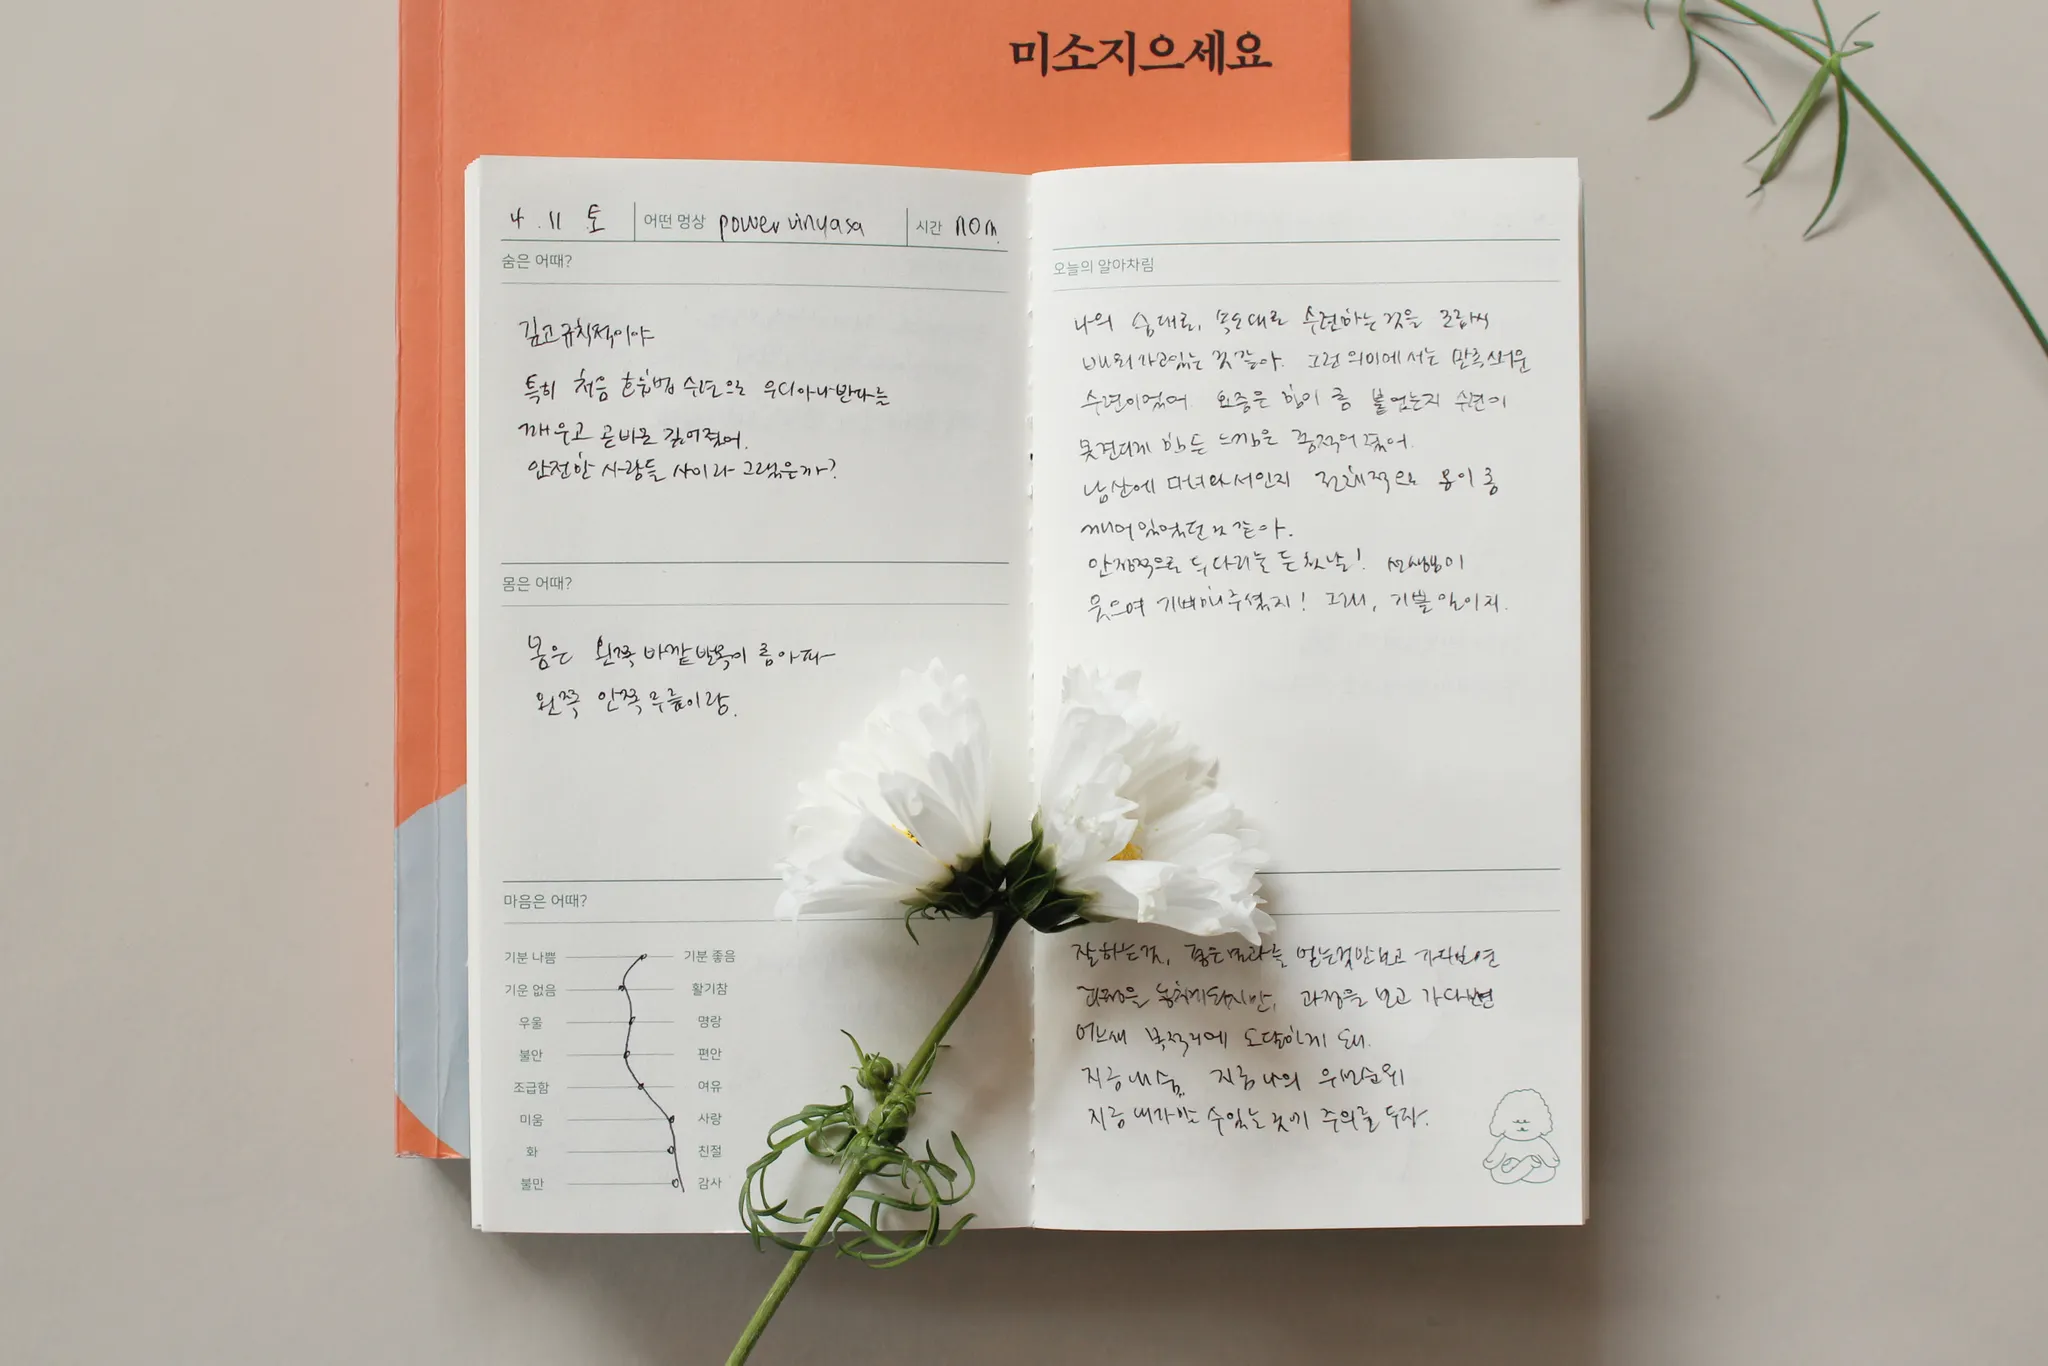 미소지으세요
4.11 토 어떤 명상 power vinyasa 시간
숨은 어때?
깊고 규칙적이야
특히 처음 호흡법 수련으로 우디아나반다를
깨우고 곧바로 깊어졌어.
안전한 사람들 사이라 그랬을까?
몸은 어때?
몸은 왼쪽 바깥 발목이 좀 아파
왼쪽 안쪽 무릎이랑.
마음은 어때?
기분 나쁨 기분 좋음
기운 없음 활기참
우울 명랑
불안 편안
조급함 여유
미움 사랑
화 친절
불만 감사
오늘의 알아차림
나의 숨대로, 속도대로 수련하는 것을 조금씩
배워가고있는 것 같아. 그런 의미에서는 만족스러운
수련이었어. 요즘은 힘이 좀 붙었는지 수련이
못견디게 힘든 느낌은 좀 적어졌어.
남산에 다녀와서인지 전체적으로 몸이 좀
깨어있었던 것 같아.
안정적으로 두 다리를 든 첫날! 선생님이
웃으며 기뻐해주셨지! 그래, 기쁠 일이지.
잘하는 것, 좋은 결과를 얻는것만 보고 가다보면
과정을 놓치게 되지만, 과정을 보고 가다보면
어느새 목적지에 도달하게 돼.
지금 내 숨, 지금 나의 우선순위
지금 내가 할 수 있는 것에 주의를 두자.